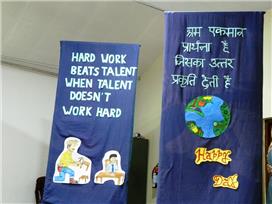 HARD WORK
BEATS TALENT
WHEN TALENT
DOESN'T
WORK HARD
श्रम एकमात्र
प्रार्थना है
जिसका उत्तर
प्रकृति देती है
Happy
Day